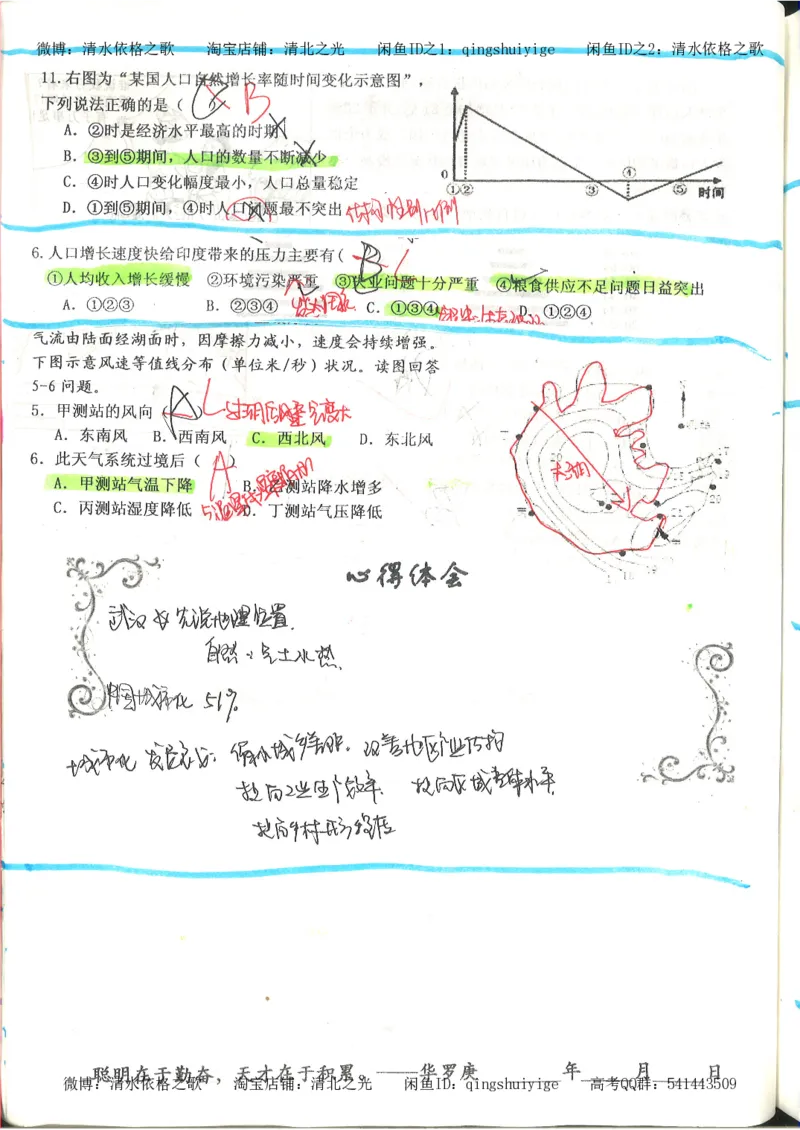 微博：清水依格之歌 淘宝店铺：清北之光 闲鱼ID之1：qingshuiyige 闲鱼ID之2：清水依格之歌
11.右图为“某国人口自然增长率随时间变化示意图”，
下列说法正确的是（ ） B
A．②时是经济水平最高的时期
B．③到⑤期间，人口的数量不断减少
C．④时人口变化幅度最小，人口总量稳定
D．①到⑤期间，④时人口问题最不突出
0 ①② ③ ④ ⑤ 时间
6.人口增长速度快给印度带来的压力主要有（ B
①人均收入增长缓慢 ②环境污染严重 ③失业问题十分严重 ④粮食供应不足问题日益突出
A．①②③ B．②③④ C．①③④ D．①②④
气流由陆面经湖面时，因摩擦力减小，速度会持续增强。
下图示意风速等值线分布（单位米/秒）状况。读图回答
5-6 问题。
5．甲测站的风向（ A ）
A．东南风 B．西南风 C．西北风 D．东北风
6．此天气系统过境后（ A ）
A．甲测站气温下降 B．乙测站降水增多
C．丙测站湿度降低 D．丁测站气压降低
心得体会
武汉 先说地理位置
自然：气土水热
中国城市化 51%
聪明在于勤奋，天才在于积累。——华罗庚 年 月 日
微博：清水依格之歌 淘宝店铺：清北之光 闲鱼ID：qingshuiyige 高考QQ群：541443509